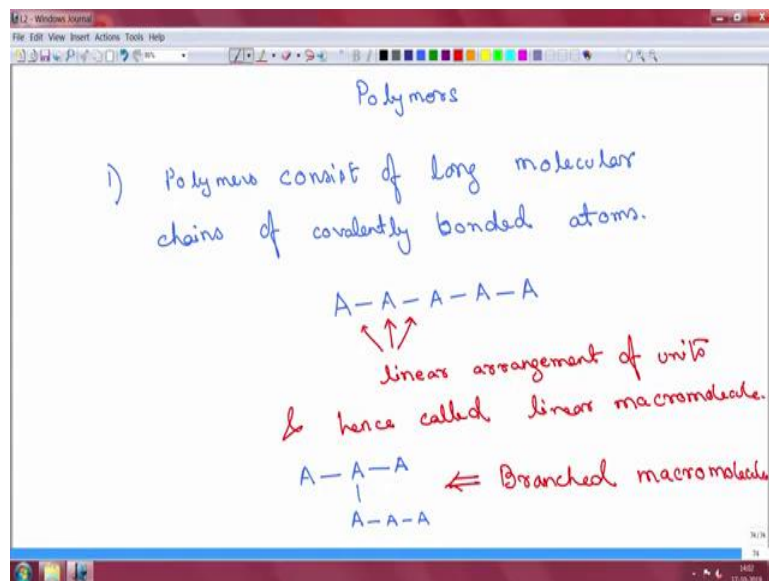 L2 - Windows Journal
File Edit View Insert Actions Tools Help
Polymers
1) Polymers consist of long molecular
chains of covalently bonded atoms.
A - A - A - A - A
linear arrangement of units
& hence called linear macromolecule.
A - A - A ⇐ Branched macromolecule
A - A - A
74/74
74
14:02